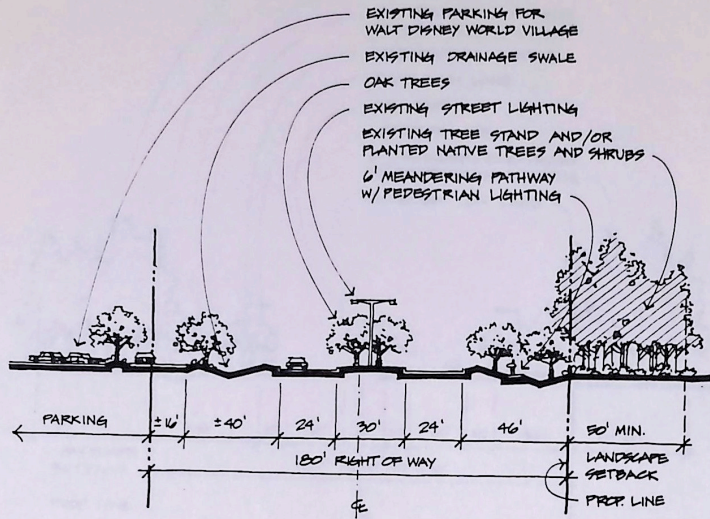 EXISTING PARKING FOR
WALT DISNEY WORLD VILLAGE
EXISTING DRAINAGE SWALE
OAK TREES
EXISTING STREET LIGHTING
EXISTING TREE STAND AND/OR
PLANTED NATIVE TREES AND SHRUBS
6' MEANDERING PATHWAY
W/ PEDESTRIAN LIGHTING
PARKING
±16'
±40'
24'
30'
24'
46'
50' MIN.
180' RIGHT OF WAY
LANDSCAPE
SETBACK
PROP. LINE
℄